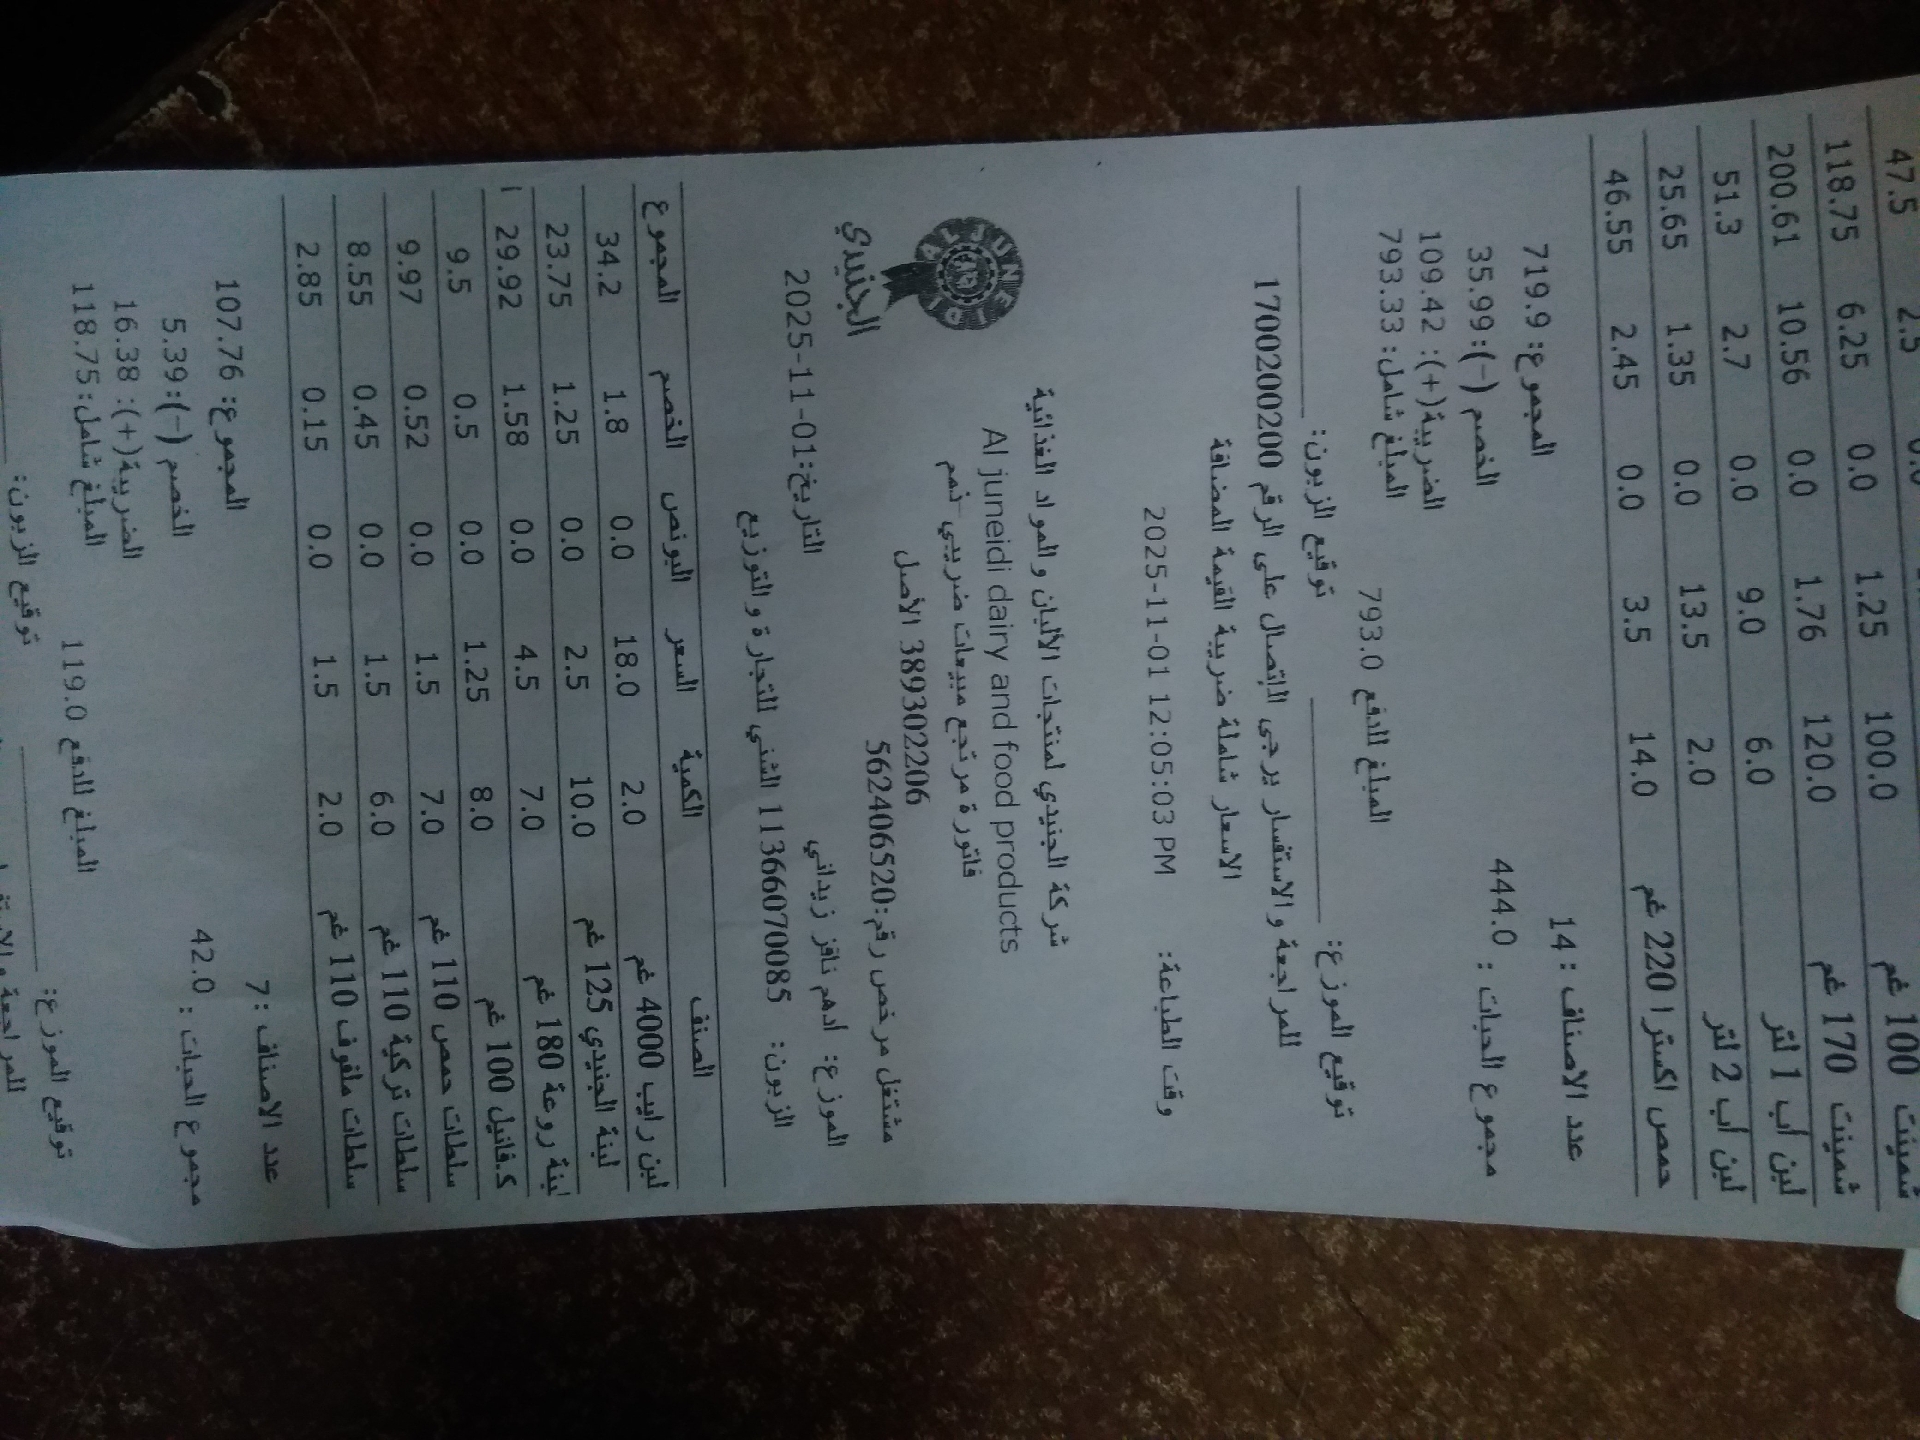 47.5 2.5 0.0 100.0 شمينت 100 غم
شمينت 170 غم 120.0 1.25 0.0 6.25 118.75
لبن أب 1 لتر 120.0 1.76 0.0 10.56 200.61
لبن أب 2 لتر 6.0 9.0 0.0 2.7 51.3
2.0 13.5 0.0 1.35 25.65
حمص اكسترا 220 غم 14.0 3.5 0.0 2.45 46.55
عدد الاصناف : 14
المجموع: 719.9
مجموع الحبات : 444.0
الخصم (-): 35.99
الضريبة(+): 109.42
المبلغ شامل: 793.33
المبلغ للدفع 793.0
توقيع الموزع: توقيع الزبون:
للمراجعة والاستفسار يرجى الاتصال على الرقم 1700200200
الاسعار شاملة ضريبة القيمة المضافة
وقت الطباعة: 2025-11-01 12:05:03 PM
شركة الجنيدي لمنتجات الألبان والمواد الغذائية
Al juneidi dairy and food products
AL JUNEIDI
الجنيدي
فاتورة مرتجع مبيعات ضريبي
389302206 الأصل
مشتغل مرخص رقم:562406520
الموزع: ادهم نافز زيداني
التاريخ:2025-11-01
الزبون: 1136607008 5 الشني للتجارة و التوزيع
الصنف الكمية السعر البونص الخصم المجموع
لبن رايب 4000 غم 2.0 18.0 0.0 1.8 34.2
لبنة الجنيدي 125 غم 10.0 2.5 0.0 1.25 23.75
لبنة روعة 180 غم 7.0 4.5 0.0 1.58 29.92
ك.فانيل 100 غم 8.0 1.25 0.0 0.5 9.5
سلطات حمص 110 غم 7.0 1.5 0.0 0.52 9.97
سلطات تركية 110 غم 6.0 1.5 0.0 0.45 8.55
سلطات ملفوف 110 غم 2.0 1.5 0.0 0.15 2.85
عدد الاصناف : 7
المجموع: 107.76
مجموع الحبات : 42.0
الخصم (-): 5.39
الضريبة(+): 16.38
المبلغ شامل: 118.75
المبلغ للدفع 119.0
توقيع الموزع: توقيع الزبون: